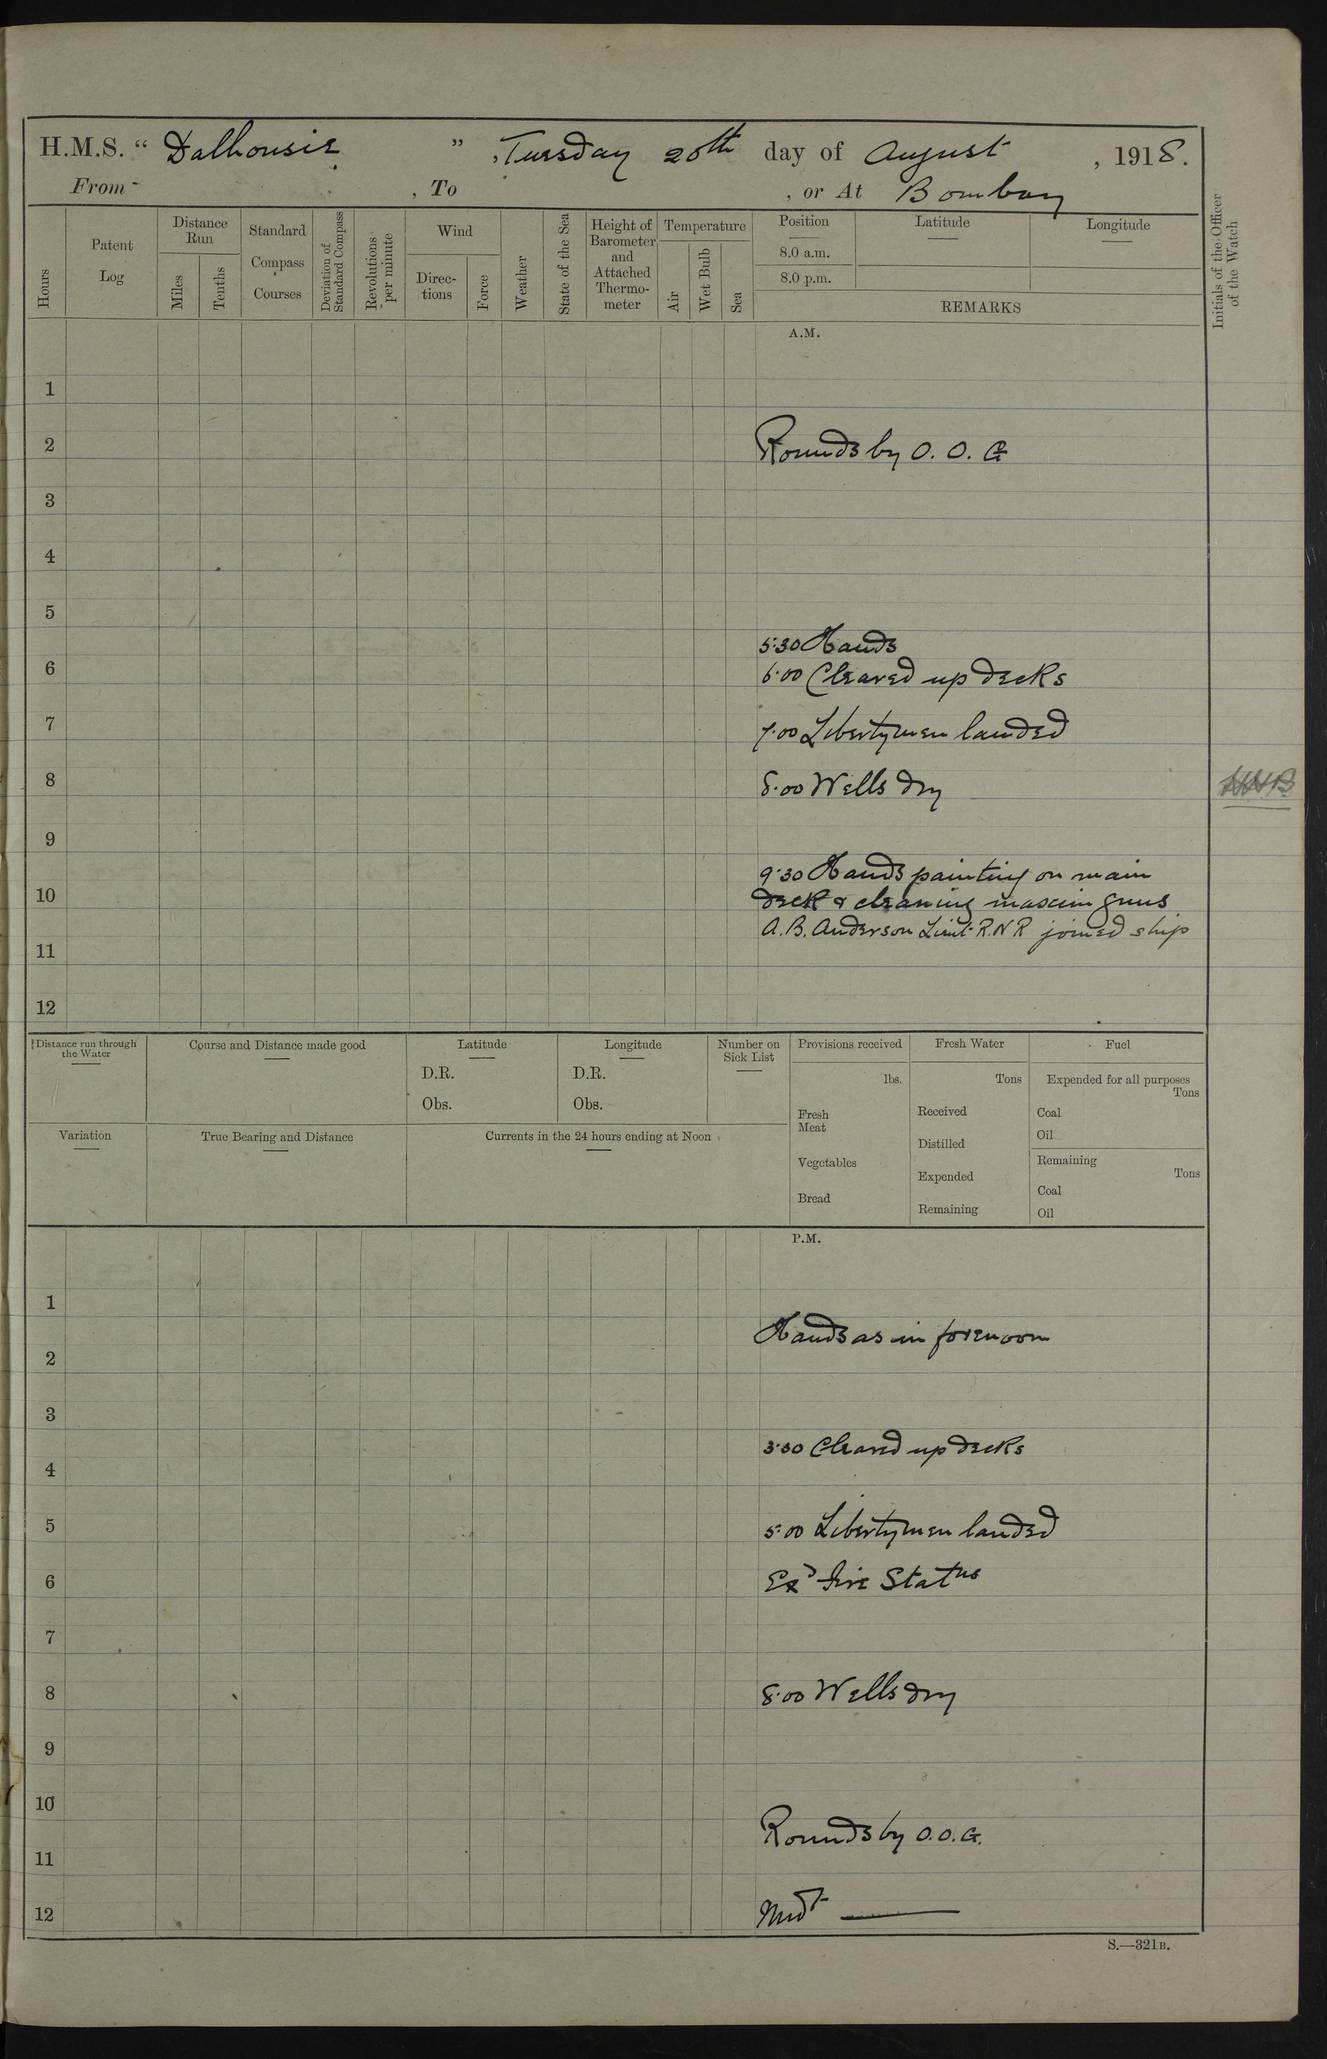 H.M.S. “ Dalhousie ” , Tuesday 20th day of August , 1918.
From , To , or At Bombay
Hours
Patent Log
Distance Run
Miles
Tenths
Standard Compass Courses
Deviation of Standard Compass
Revolutions per minute
Wind
Direc-tions
Force
Weather
State of the Sea
Height of Barometer and Attached Thermo-meter
Temperature
Air
Wet Bulb
Sea
Position
8.0 a.m.
8.0 p.m.
Latitude
Longitude
REMARKS
Initials of the Officer of the Watch
A.M.
1
2 Rounds by O. O. G
3
4
5
5.30 Hands
6 6.00 Cleared up decks
7 7.00 Libertymen landed
8 8.00 Wells dry
9
9.30 Hands painting on main
10 deck & cleaning maxim guns
A. B. Anderson Lieut R.N.R joined ship
11
12
Distance run through the Water
Course and Distance made good
Latitude
D.R.
Obs.
Longitude
D.R.
Obs.
Number on Sick List
Provisions received
lbs.
Fresh Meat
Vegetables
Bread
Fresh Water
Tons
Received
Distilled
Expended
Remaining
Fuel
Expended for all purposes
Tons
Coal
Oil
Remaining
Tons
Coal
Oil
Variation
True Bearing and Distance
Currents in the 24 hours ending at Noon
P.M.
1
Hands as in forenoon
2
3
3.30 Cleared up decks
4
5 5.00 Libertymen landed
6 Exd Fire Statns
7
8 8.00 Wells dry
9
10
Rounds by O.O.G.
11
12 Midt
S.—321B.